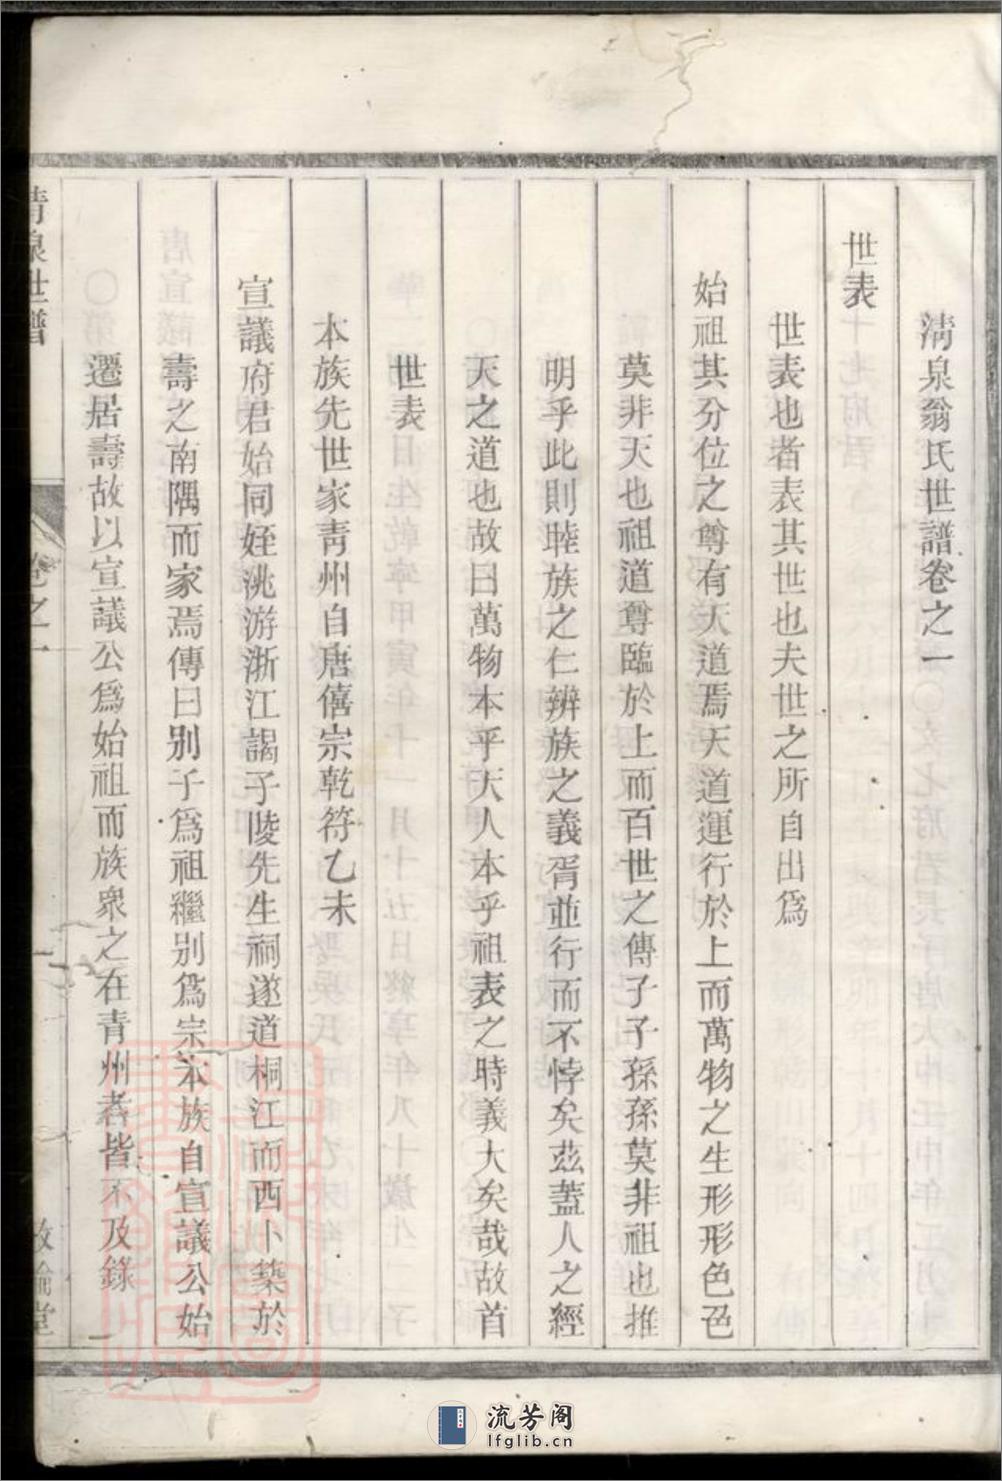 清泉翁氏世譜卷之一
世表
世表也者表其世也夫世之所自出爲
始祖其分位之尊有天道焉天道運行於上而萬物之生形形色色
莫非天也祖道尊臨於上而百世之傳子子孫孫莫非祖也推
明乎此則睦族之仁辨族之義胥並行而不悖矣茲蓋人之經
天之道也故曰萬物本乎天人本乎祖表之時義大矣哉故首
世表
本族先世家靑州自唐僖宗乾符乙未
宣議府君始同姪洮游浙江謁子陵先生祠遂道桐江而西卜築於
壽之南隅而家焉傳曰別子爲祖繼別爲宗本族自宣議公始
遷居壽故以宣議公爲始祖而族衆之在青州者皆不及錄
清泉世譜
卷之一
敦倫堂
流芳阁
lfglib.cn